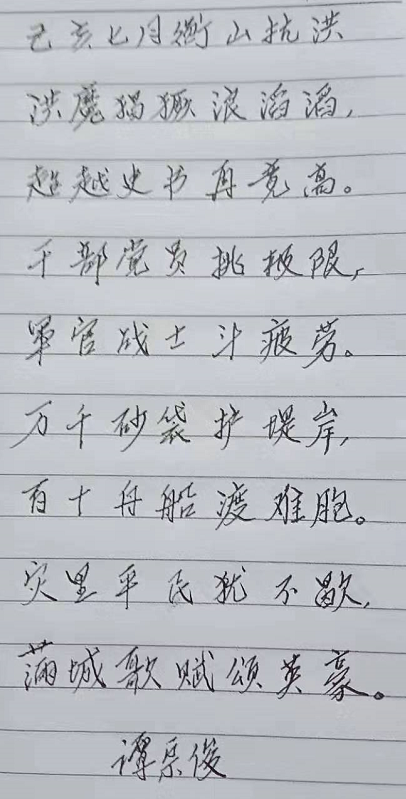 己亥七月衡山抗洪
洪魔猖獗浪滔滔,
超越史书再竞高。
干部党员挑极限,
軍官战士斗疲劳。
万千砂袋护堤岸,
百十舟船渡难胞。
灾里平民犹不歇,
满城歌赋颂英豪。
谭乐俊